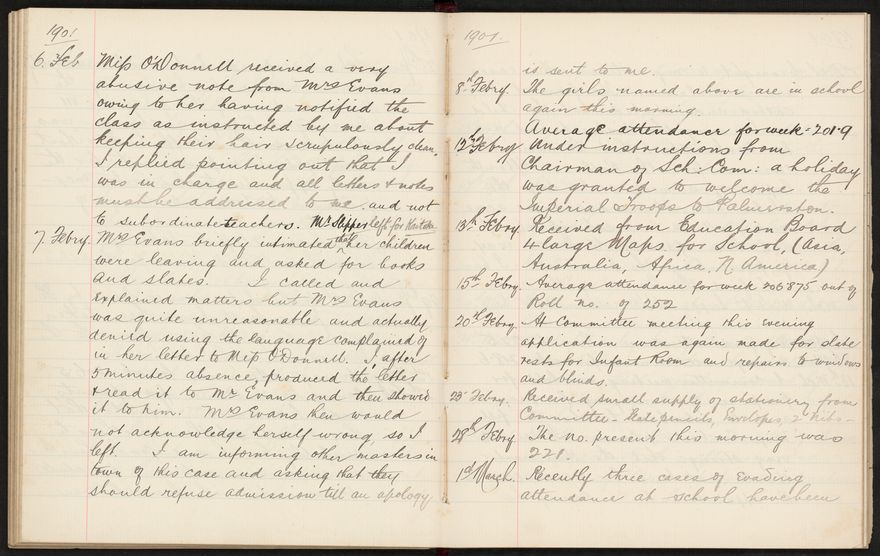 1901
6. Feb Miss O'Donnell received a very
abusive note from Mrs Evans
owing to her having notified the
class as instructed by me about
keeping their hair scrupulously clean.
I replied pointing out that I
was in charge and all letters & notes
must be addressed to me and not
to subordinate teachers. Mr Slipper left for
7. Febry. Mrs Evans briefly intimated that her children
were leaving and asked for books
and slates. I called and
explained matters but Mrs Evans
was quite unreasonable and actually
denied using the language complained of
in her letter to Miss O'Donnell. I, after
5 minutes absence, produced the letter
& read it to Mr Evans and then showed
it to him. Mrs Evans then would
not acknowledge herself wrong so I
left. I am informing other masters in
town of this case and asking that they
should refuse admission till an apology
1901.
is sent to me.
8th Febry. The girls named above are in school
again this morning.
Average attendance for week = 201.9
12th Febry Under instructions from
Chairman of Sch: Com: a holiday
was granted to welcome the
Imperial Troops to Palmerston.
13th Febry Received from Education Board
4 large Maps for School, (Asia,
Australia, Africa, N. America)
15th Febry. Average attendance for week 206.875 out of
Roll no. of 252
20th Febry At Committee meeting this evening
application was again made for slate
rests for Infant Room and repairs to windows
and blinds.
25 Febry. Received small supply of stationery from
Committee - Slate pencils, Envelopes, 2 Nibs -
28th Febry The no. present this morning was
221.
1st March. Recently three cases of evading
attendance at school have been